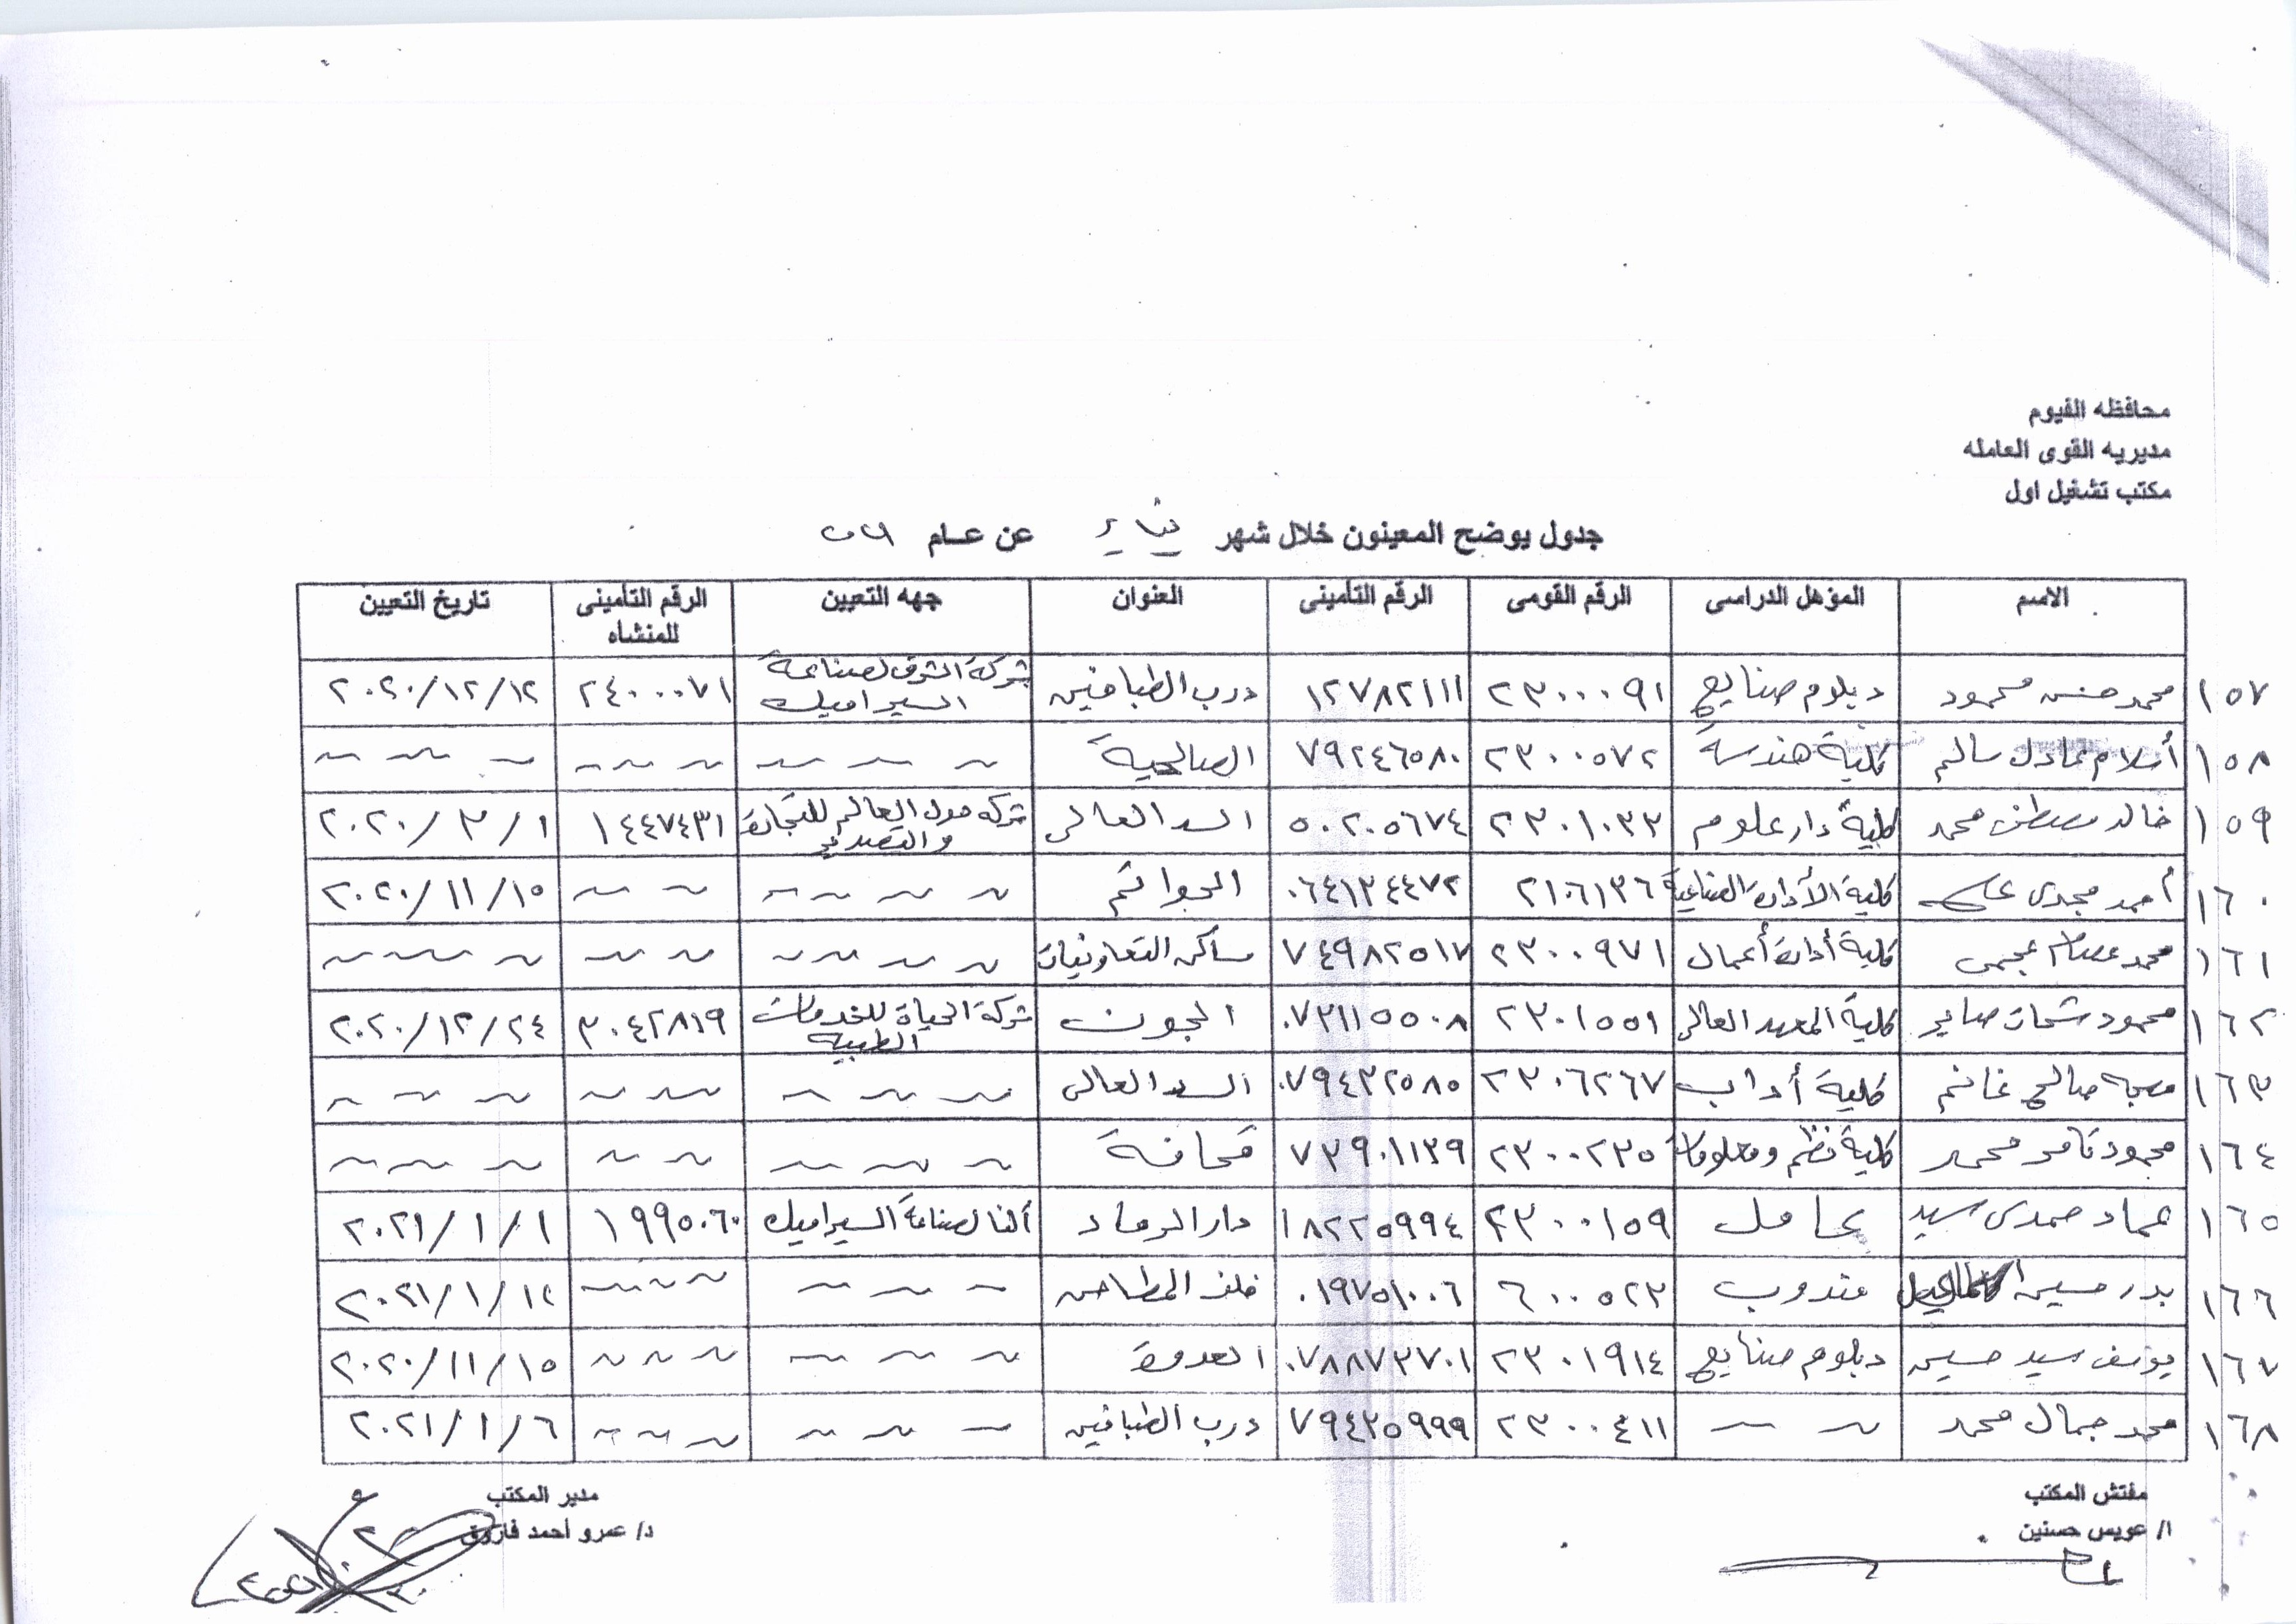 محافظه الفيوم
مديريه القوى العامله
مكتب تشغيل اول
جدول يوضح المعينون خلال شهر يناير عن عام ٢٠٢١
الاسم المؤهل الدراسى الرقم القومى الرقم التأمينى العنوان جهه التعيين الرقم التأمينى للمنشاه تاريخ التعيين
١٥٧ محمد حسن محمود دبلوم صنايع ٢٣٠٠٠٩١ ١٢٧٨٢١١١ درب الطباخين شركة الشرق لصناعة السيراميك ٢٤٠٠٠٧١ ٢٠٢٠/١٢/١٢
١٥٨ أحلام عادل سالم كلية هندسة ٢٣٠٠٥٧٢ ٧٩٢٤٦٥٨٠ الصالحية ~ ~ ~ ~ ~ ~ ~ ~ ~
١٥٩ خالد مصطفى محمد كلية دار علوم ٢٣٠١٠٣٣ ٥٠٢٠٥٦٧٤ السد العالى شركه حول العالم للتجارة والتصدير ١٤٤٧٤٣١ ٢٠٢٠/٣/١
١٦٠ أحمد مجدى على كلية الأدارة الصناعية ٢١٠٦١٣٦ ٠٦٤١٣٤٤٧٢ الحواتم ~ ~ ~ ~ ~ ~ ٢٠٢٠/١١/١٥
١٦١ محمد عصام عجمى كلية أدارة أعمال ٢٣٠٠٩٧١ ٧٤٩٨٢٥١٧ مساكن التعاونيات ~ ~ ~ ~ ~ ~ ~ ~ ~ ~
١٦٢ محمود شحات صابر كلية المعهد العالى ٢٣٠١٥٥١ ٠٧٣١١٥٥٠٨ الجون شركة الحياة للخدمات الطبية ٣٠٤٢٨١٩ ٢٠٢٠/١٢/٢٤
١٦٣ صالح غانم كلية أداب ٢٣٠٦٢٦٧ ٠٧٩٤٣٢٥٨٥ السد العالى ~ ~ ~ ~ ~ ~ ~ ~
١٦٤ محمود تامر محمد كلية نظم ومعلومات ٢٣٠٠٢٣٥ ٧٣٩٠١١٣٩ قحافة ~ ~ ~ ~ ~ ~ ~ ~
١٦٥ عماد حمدى سيد عامل ٢٣٠٠١٥٩ ١٨٢٢٥٩٩٤ دار الرماد ألفا لصناعة السيراميك ١٩٩٥٠٦٠ ٢٠٢١/١/١
١٦٦ بدر حسين مندوب ٦٠٠٥٢٣ ٠١٩٧٥١٠٠٦ خلف المطاحن ~ ~ ~ ~ ~ ~ ٢٠٢١/١/١٢
١٦٧ يوسف سيد حسين دبلوم صنايع ٢٣٠١٩١٤ ٠٧٨٨٧٣٧٠١ العدوة ~ ~ ~ ~ ~ ~ ٢٠٢٠/١١/١٥
١٦٨ محمد جمال محمد ~ ~ ٢٣٠٠٤١١ ٧٩٤٢٥٩٩٩ درب الطباخين ~ ~ ~ ~ ~ ~ ٢٠٢١/١/٦
مفتش المكتب مدير المكتب
ا/ عويس حسنين د/ عمرو أحمد فاروق